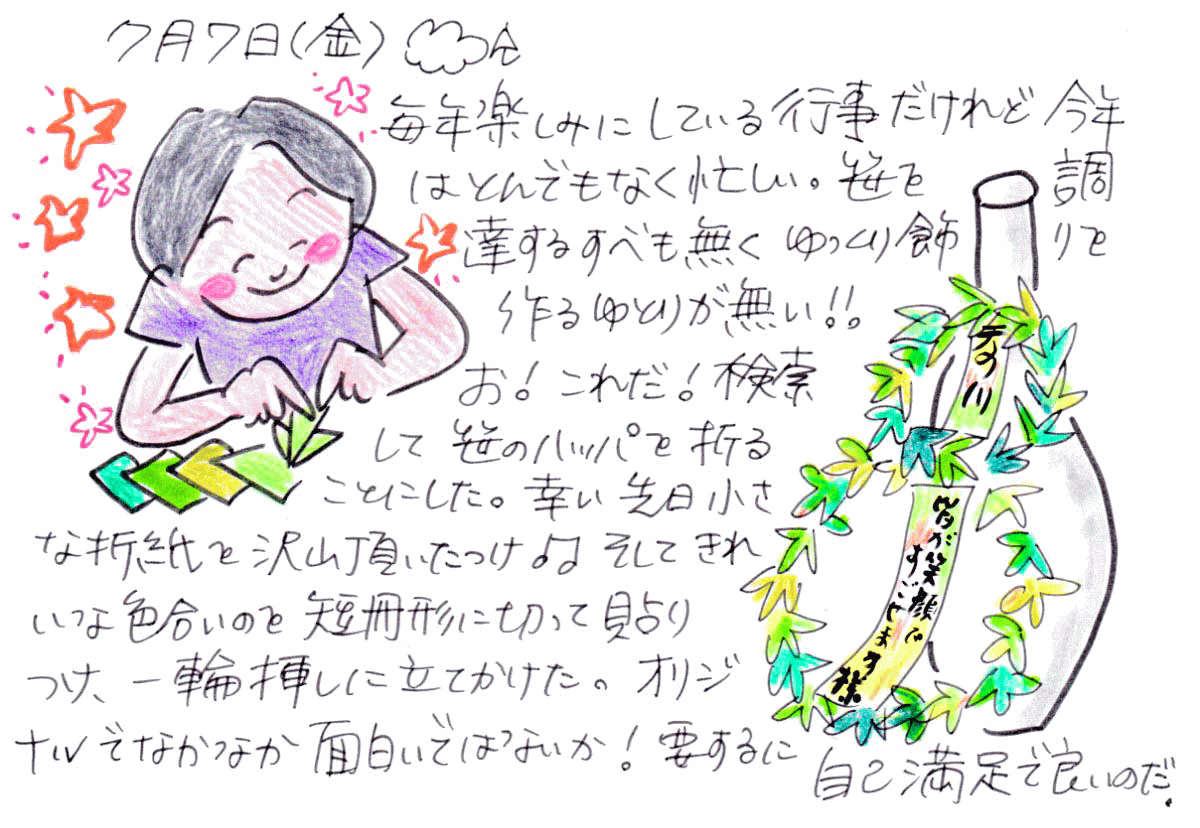 7月7日(金)
毎年楽しみにしている行事だけれど今年
はとんでもなく忙しい。笹を調
達するすべも無くゆっくり飾りを
作るゆとりが無い!!
お!これだ!検索
して笹のハッパを折る
ことにした。幸い先日小さ
な折紙を沢山頂いたっけ♫そしてきれ
いな色合いのを短冊形に切って貼り
つけ、一輪挿しに立てかけた。オリジ
ナルでなかなか面白いではないか!要するに
自己満足で良いのだ!
天の川
皆が笑顔で
すごせます様